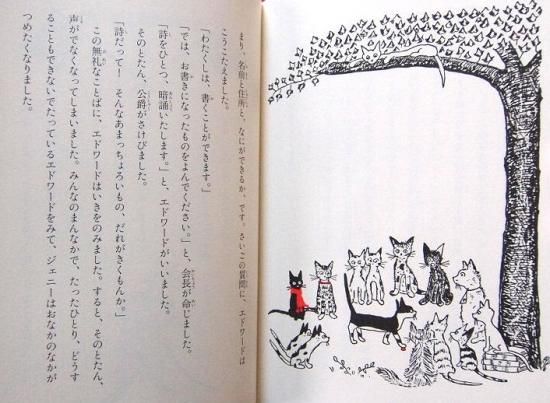 まり、名前と住所と、なにができるか、です。さいごの質問に、エドワードは
こうこたえました。
「わたくしは、書くことができます。」
「では、お書きになったものをよんでください。」と、会長が命じました。
「詩をひとつ、暗誦いたします。」と、エドワードがいいました。
そのとたん、公爵がさけびました。
「詩だって！　そんなあまっちょろいもの、だれがきくもんか。」
この無礼なことばに、エドワードはいきをのみました。すると、そのとたん、
声がでなくなってしまいました。みんなのまんなかで、たったひとり、どうす
ることもできないでたっているエドワードをみて、ジェニーはおなかのなかが
つめたくなりました。